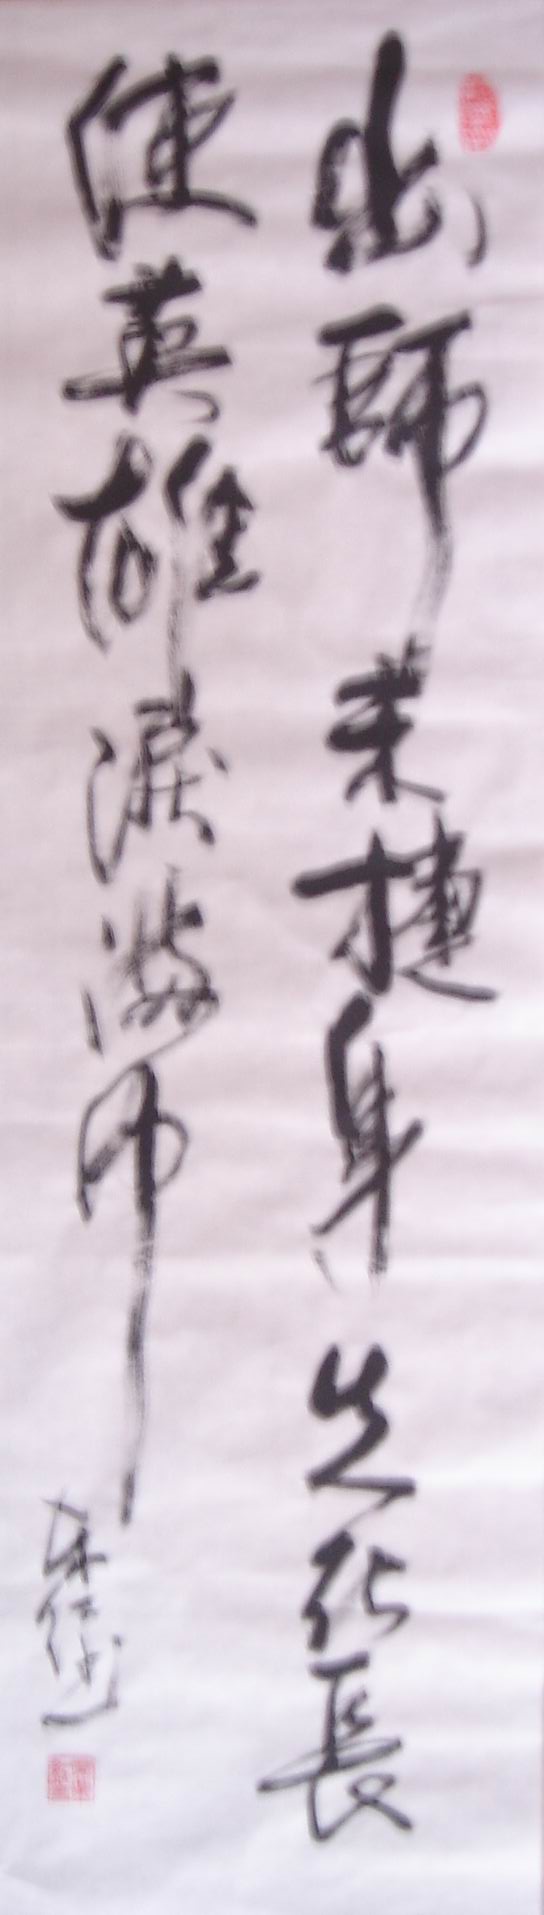 出師未捷身先死長
使英雄淚滿巾